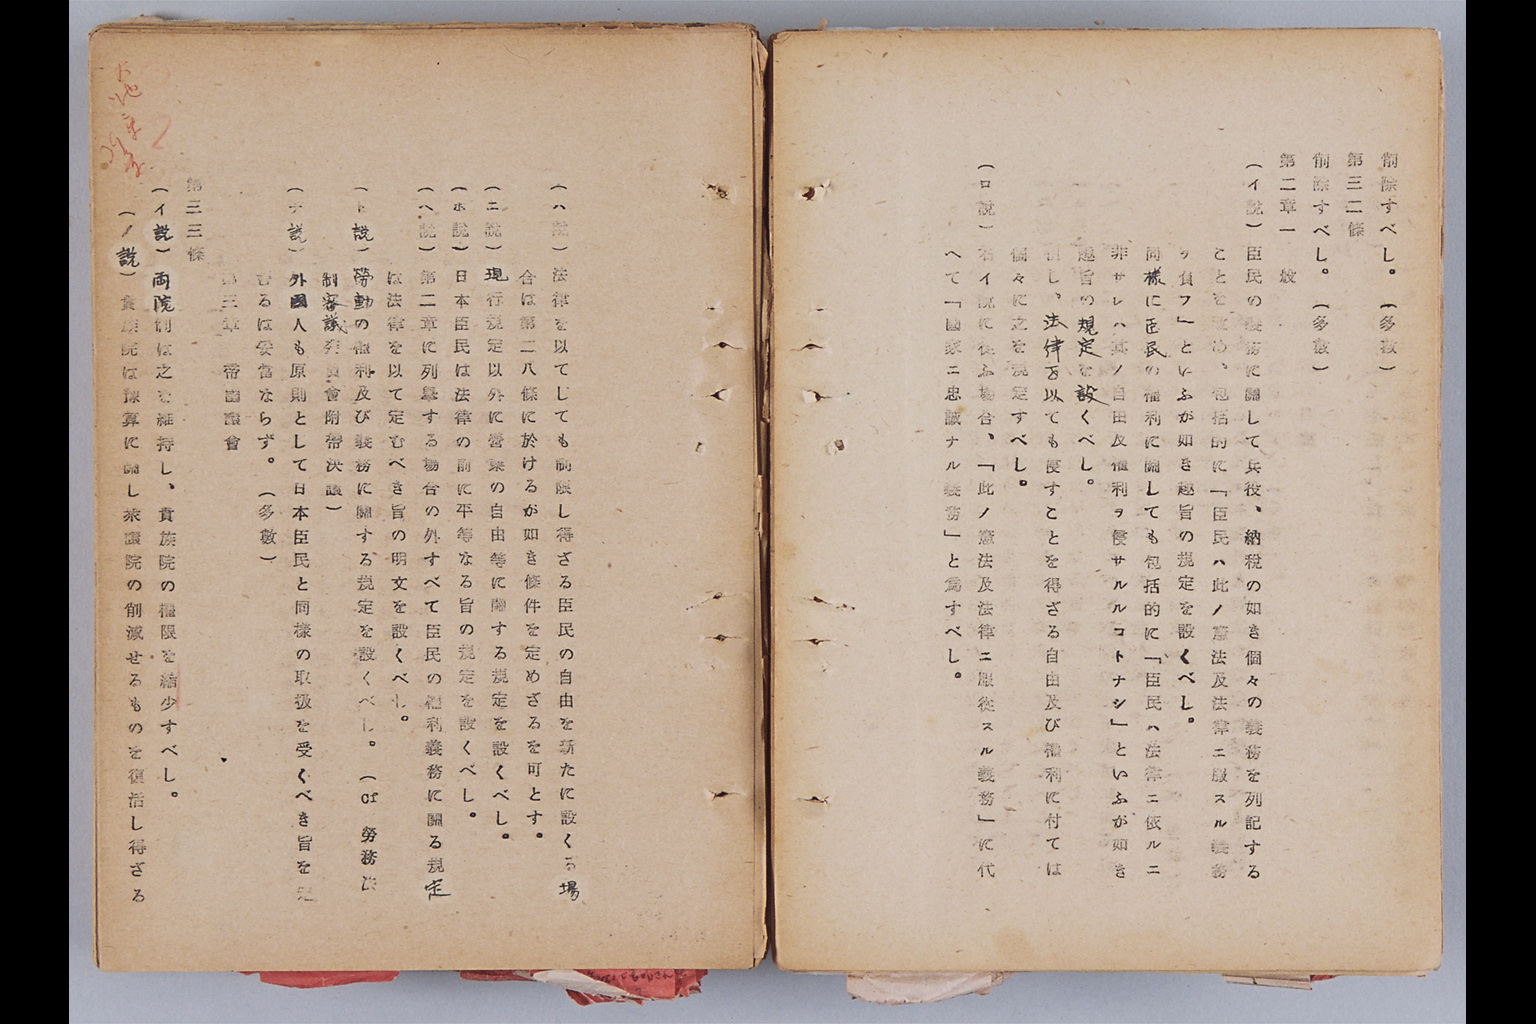 削除すべし。（多数）
第三二條
削除すべし。（多数）
第二章一般
（イ説）臣民の義務に關して兵役、納税の如き個々の義務を列記する
ことを 、包括的に「臣民ハ此ノ憲法及法律ニ服スル義務
ヲ負フ」といふが如き趣旨の規定を設くべし。
同様に臣民の權利に關しても包括的に「臣民ハ法律ニ依ルニ
非サレハ其ノ自由及權利ヲ侵サルルコトナシ」といふが如き
趣旨の規定を設くべし。
但し、法律を以ても侵すことを得ざる自由及び權利に付ては
個々に之を規定すべし。
（ロ説）右イ説に從ふ場合、「此ノ憲法及法律ニ服從スル義務」に代
へて「國家ニ忠誠ナル義務」と爲すべし。
（ハ説）法律を以てしても制限し得ざる臣民の自由を新たに設くる場
合は第二八條に於けるが如き條件を定めざるを可とす。
（ニ説）現行規定以外に營業の自由等に關する規定を設くべし。
（ホ説）日本臣民は法律の前に平等なる旨の規定を設くべし。
（ヘ説）第二章に列擧する場合の外すべて臣民の權利義務に關る規定
は法律を以て定むべき旨の明文を設くべし。
（ト説）勞動の權利及び義務に關する規定を設くべし。（cf 勞務法
制審議委員會附帶決議）
（チ説）外國人も原則として日本臣民と同様の取扱を受くべき旨を定
むるは妥當ならず。（多數）
第三章 帝國議會
第三三條
（イ説）両院制は之を維持し、貴族院の權限を縮少すべし。
（ノ説）貴族院は豫算に關し衆議院の削減せるものを復活し得ざる